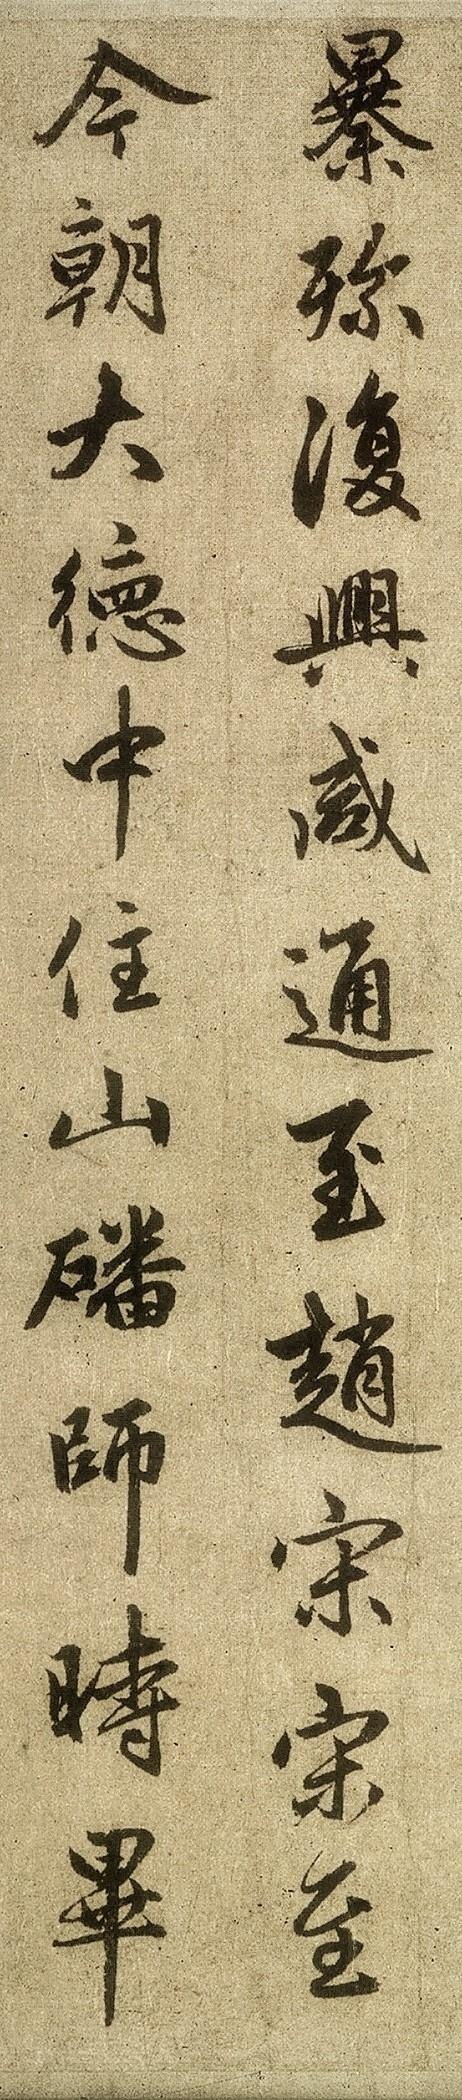 纍殄復興咸通至趙宋宋至
今朝大德中住山磻師時畢